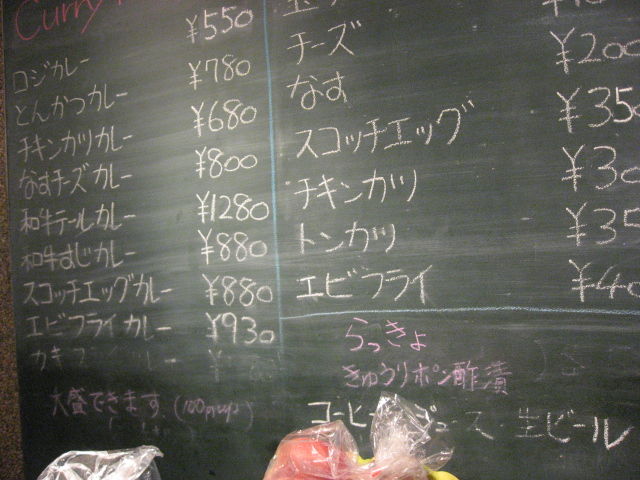 Curry
ロジカレー ¥550
とんかつカレー ¥780
チキンカツカレー ¥680
なすチーズカレー ¥800
和牛テールカレー ¥1280
和牛すじカレー ¥880
スコッチエッグカレー ¥880
エビフライカレー ¥930
大盛できます (100円up)
チーズ
なす ¥200
スコッチエッグ ¥350
チキンカツ ¥30
トンカツ ¥35
エビフライ ¥40
らっきょ
きゅうりポン酢漬
コーヒー ジュース・生ビール